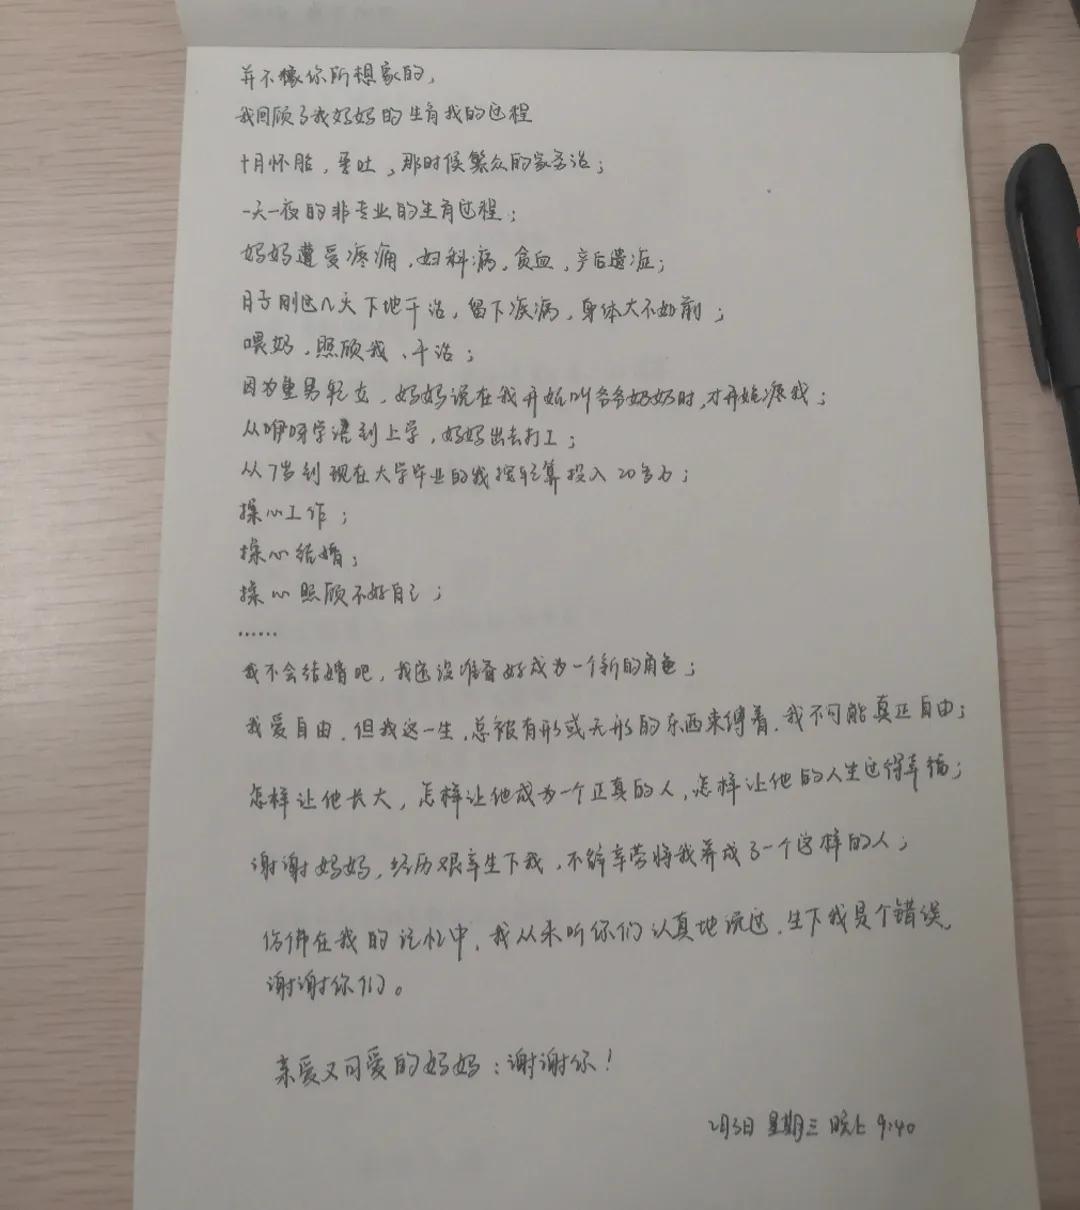 并不像你所想象的,
我回顾了我妈妈的生育我的过程
十月怀胎,孕吐,那时候繁众的家务活;
一天一夜的非专业的生育过程;
妈妈遭受疼痛,妇科病,贫血,产后遗症;
月子刚过几天下地干活,留下疾病,身体大不如前;
喂奶,照顾我、干活;
因为重男轻女,妈妈说在我开始叫爷爷奶奶时,才开始疼我;
从咿呀学语到上学,妈妈出去打工;
从7岁到现在大学毕业的我按轻算投入20多万;
操心工作;
操心结婚;
操心照顾不好自己;
……
我不会结婚吧,我还没准备好成为一个新的角色;
我爱自由,但我这一生,总被有形或无形的东西束缚着,我不可能真正自由;
怎样让他长大,怎样让他成为一个正真的人,怎样让他的人生过得幸福;
谢谢妈妈,经历艰辛生下我,不辞辛劳将我养成了一个这样的人;
仿佛在我的记忆中,我从未听你们认真地说过,生下我是个错误,
谢谢你们。
亲爱又可爱的妈妈:谢谢你!
2月3日 星期三 晚上 9:40